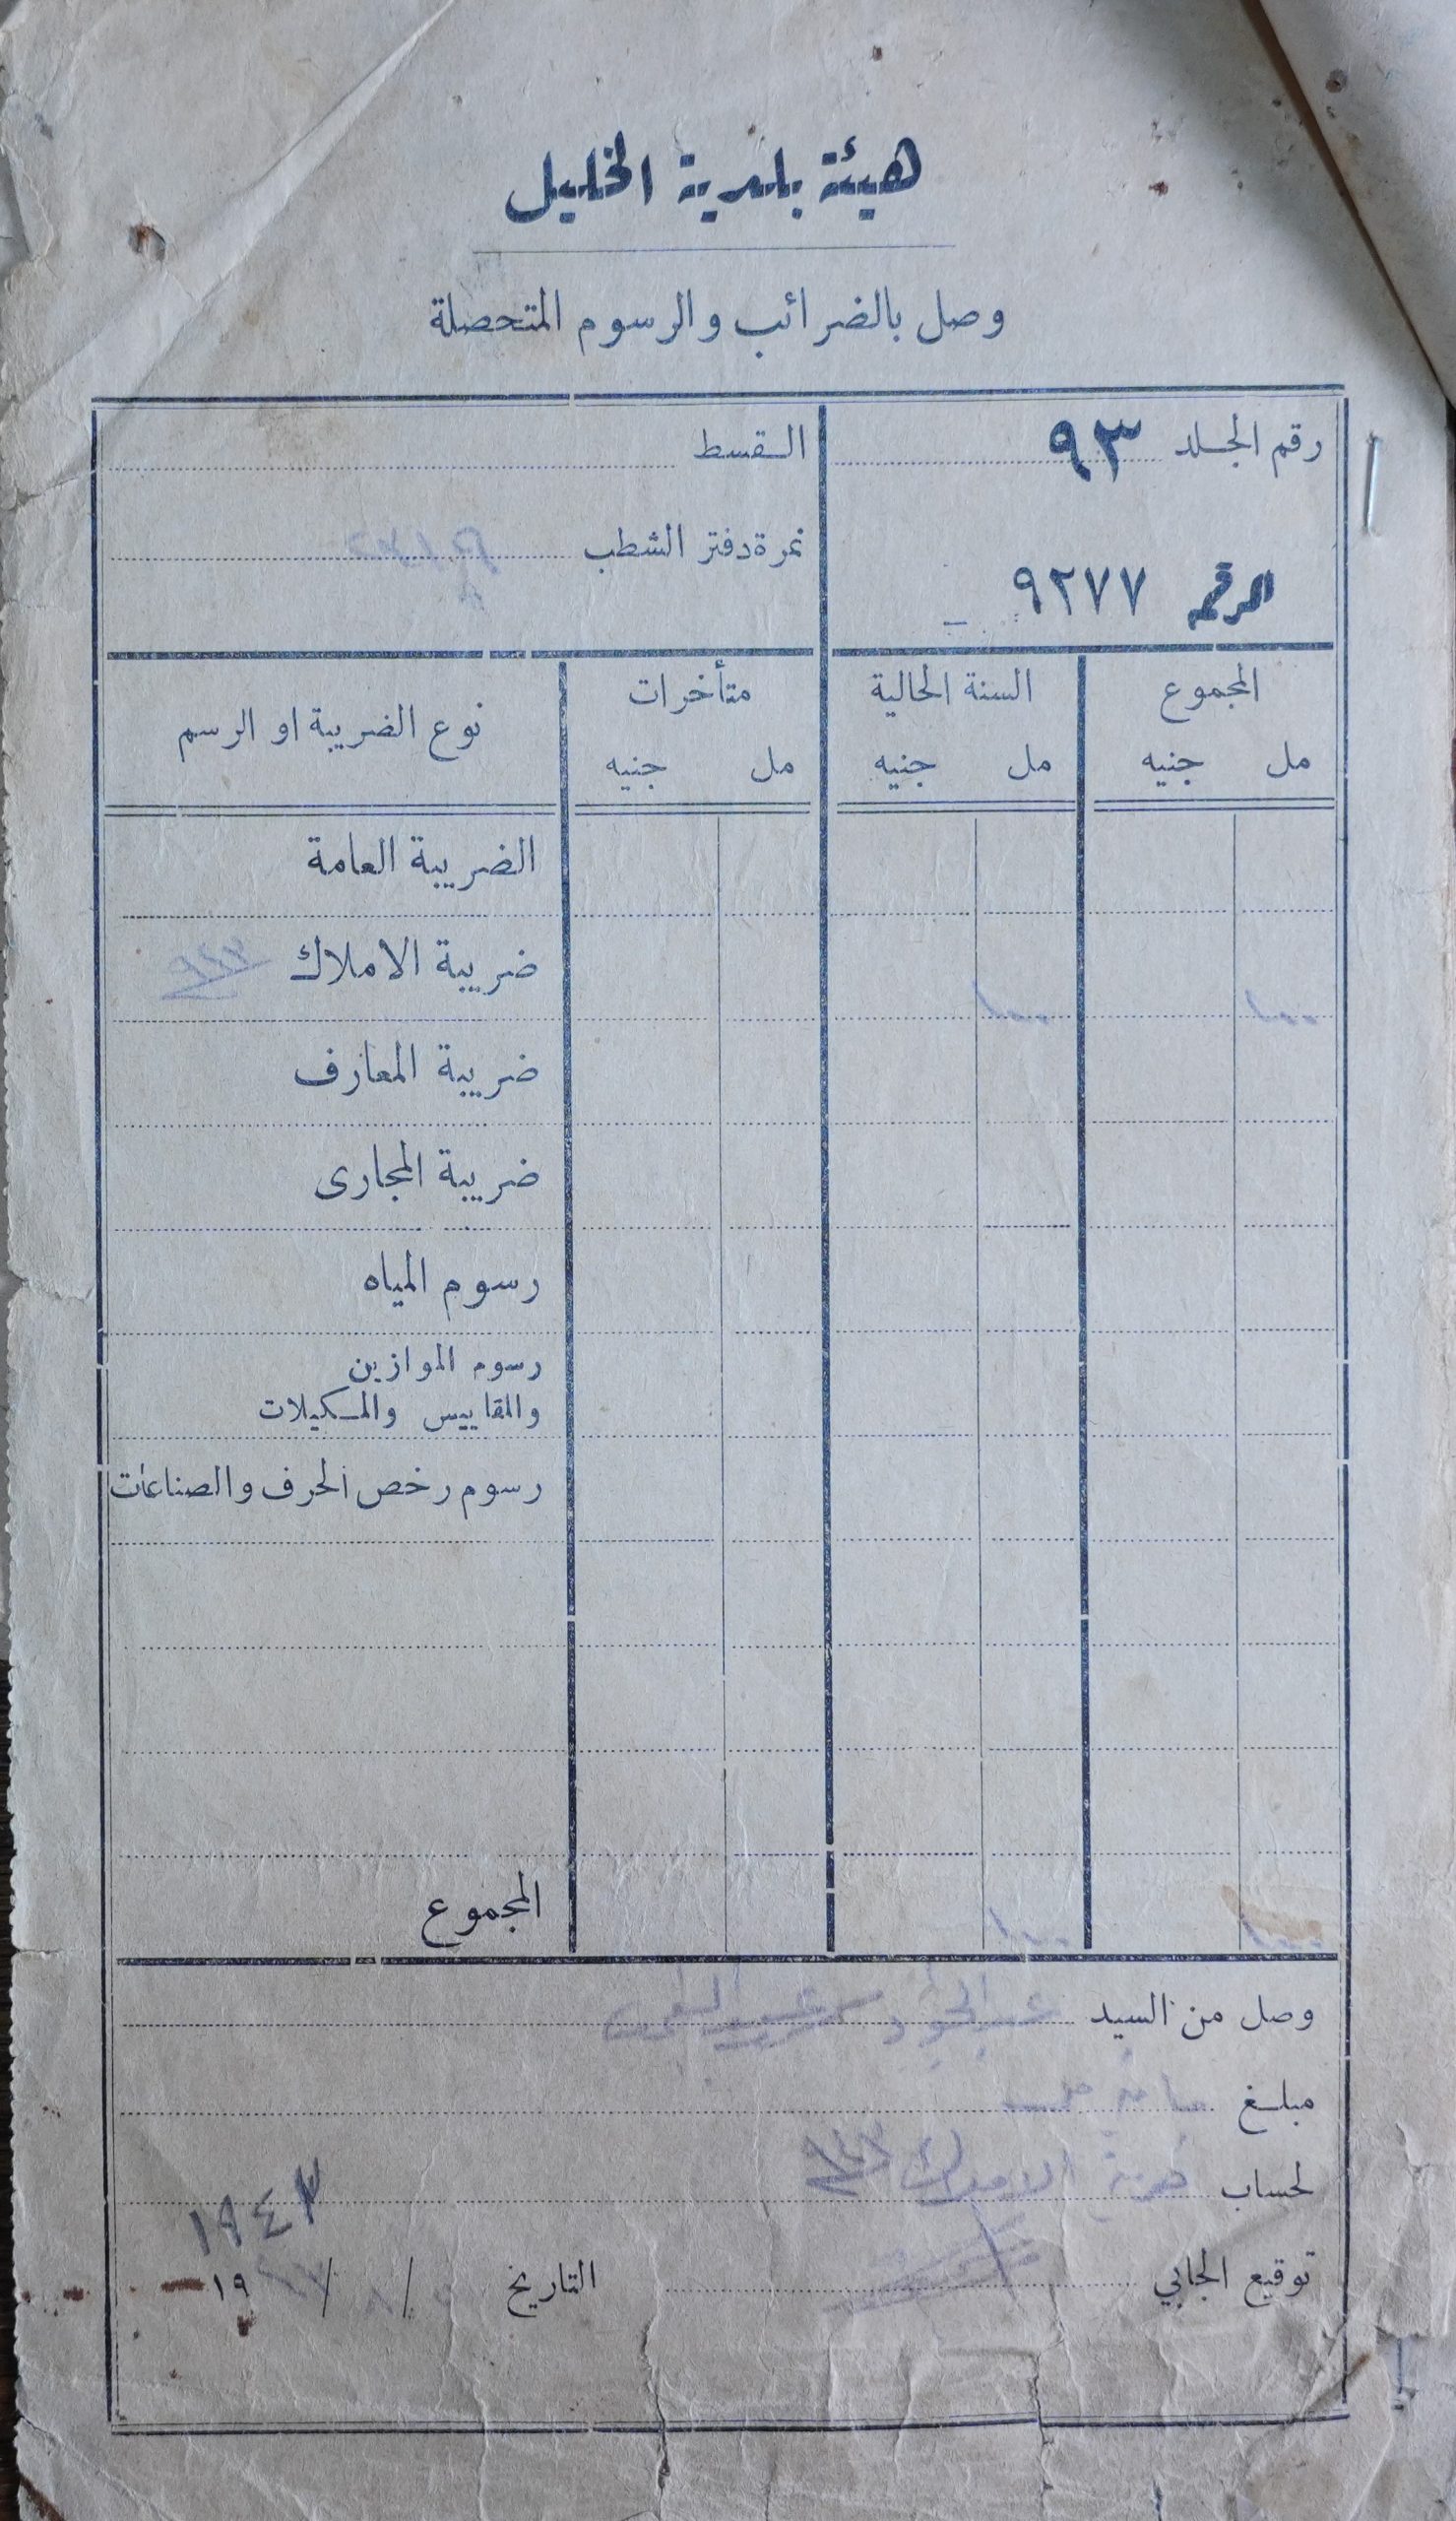 هيئة بلدية الخليل
وصل بالضرائب والرسوم المتحصلة
رقم الجلد ٩٣
القسط
نمرة دفتر الشطب
الرقم ٩٢٧٧
المجموع
السنة الحالية
متأخرات
نوع الضريبة او الرسم
مل جنيه
مل جنيه
مل جنيه
الضريبة العامة
ضريبة الاملاك ٩٤٣
ضريبة المعارف
ضريبة المجارى
رسوم المياه
رسوم الموازين
والمقاييس والمكيلات
رسوم رخص الحرف والصناعات
المجموع
وصل من السيد عبد الجواد
مبلغ
لحساب ضريبة الاملاك ٩٤٣
١٩٤٣
توقيع الجابي
التاريخ / ٨ / ١٩